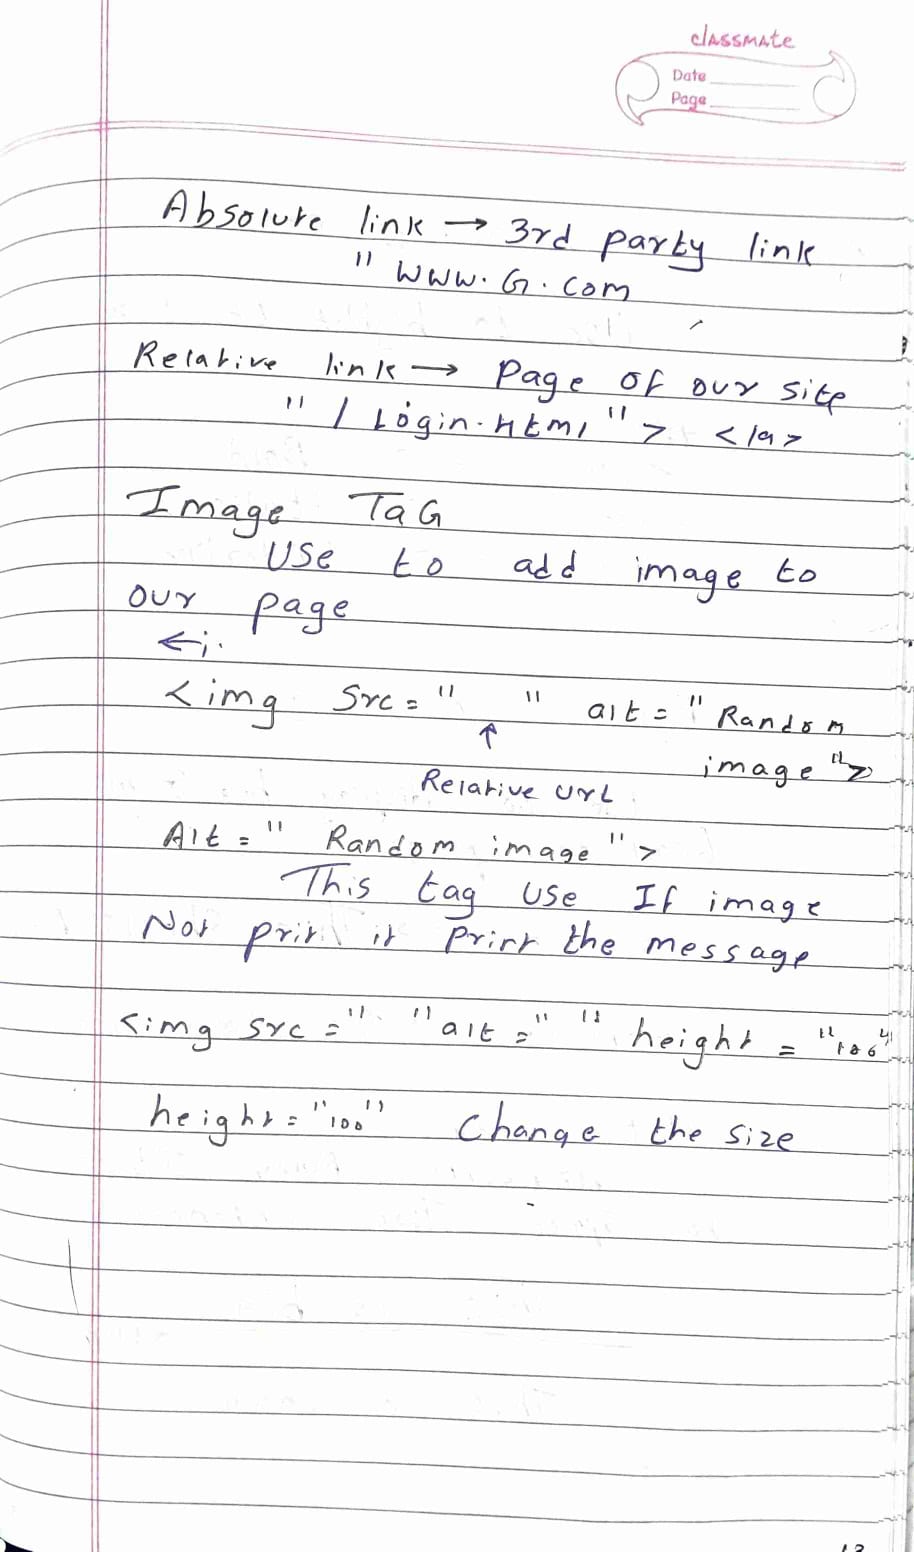 classmate
Date
Page
Absolute link → 3rd party link
" www.G.com
Relative link → Page of our site
" / Login.Html " > </a>
Image TaG
Use to add image to
our page
<i.
<img Src = " " alt = " Random
image ">
↑
Relative UrL
Alt = " Random image " >
This tag use If image
Not prit it print the message
<img src = " " alt = " " height = "100"
height = "100" Change the size